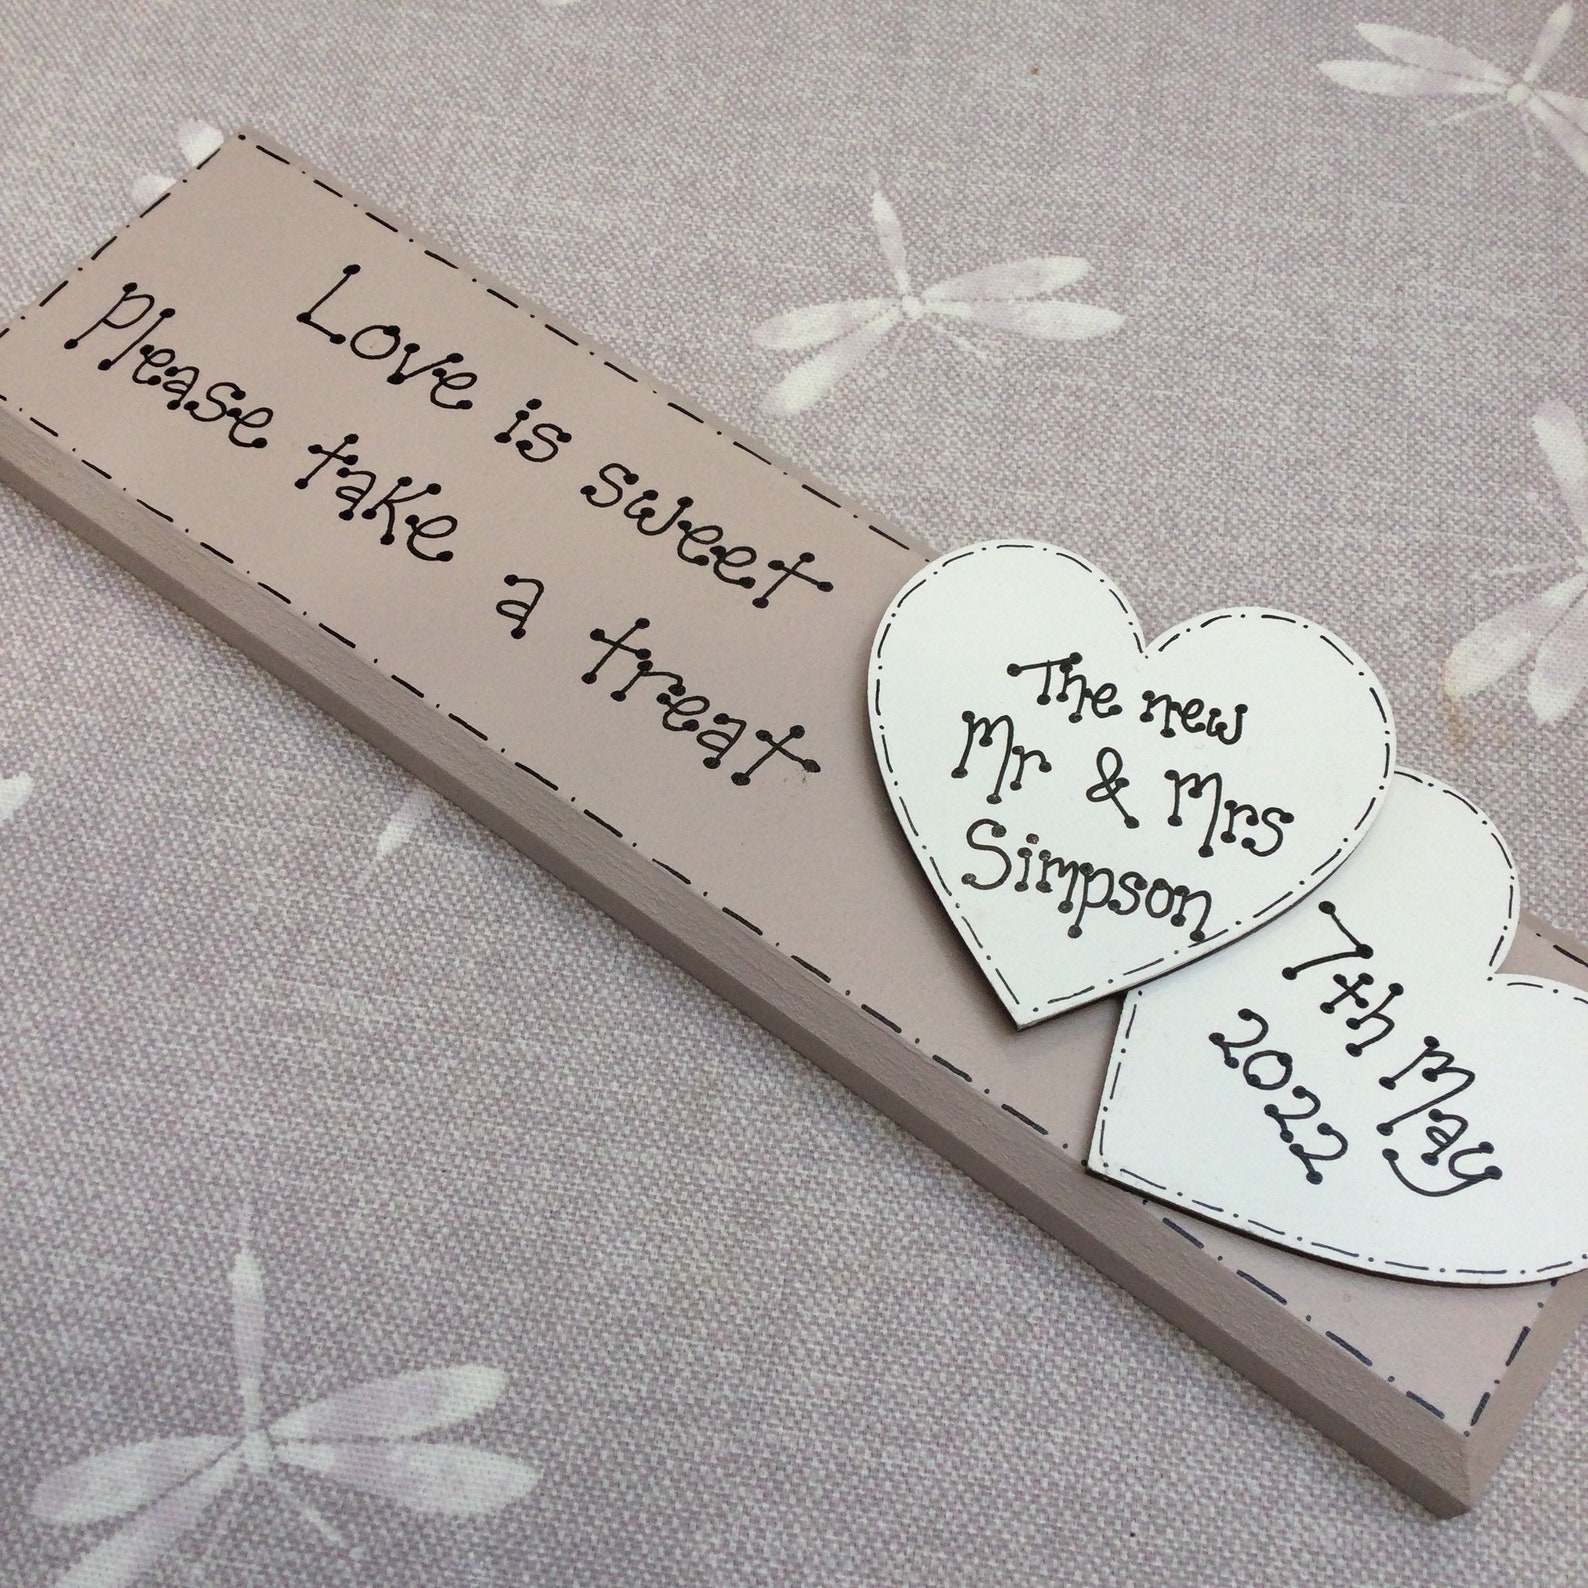 Love is sweet
Please take a treat
The new
Mr & Mrs
Simpson
7th May
2022